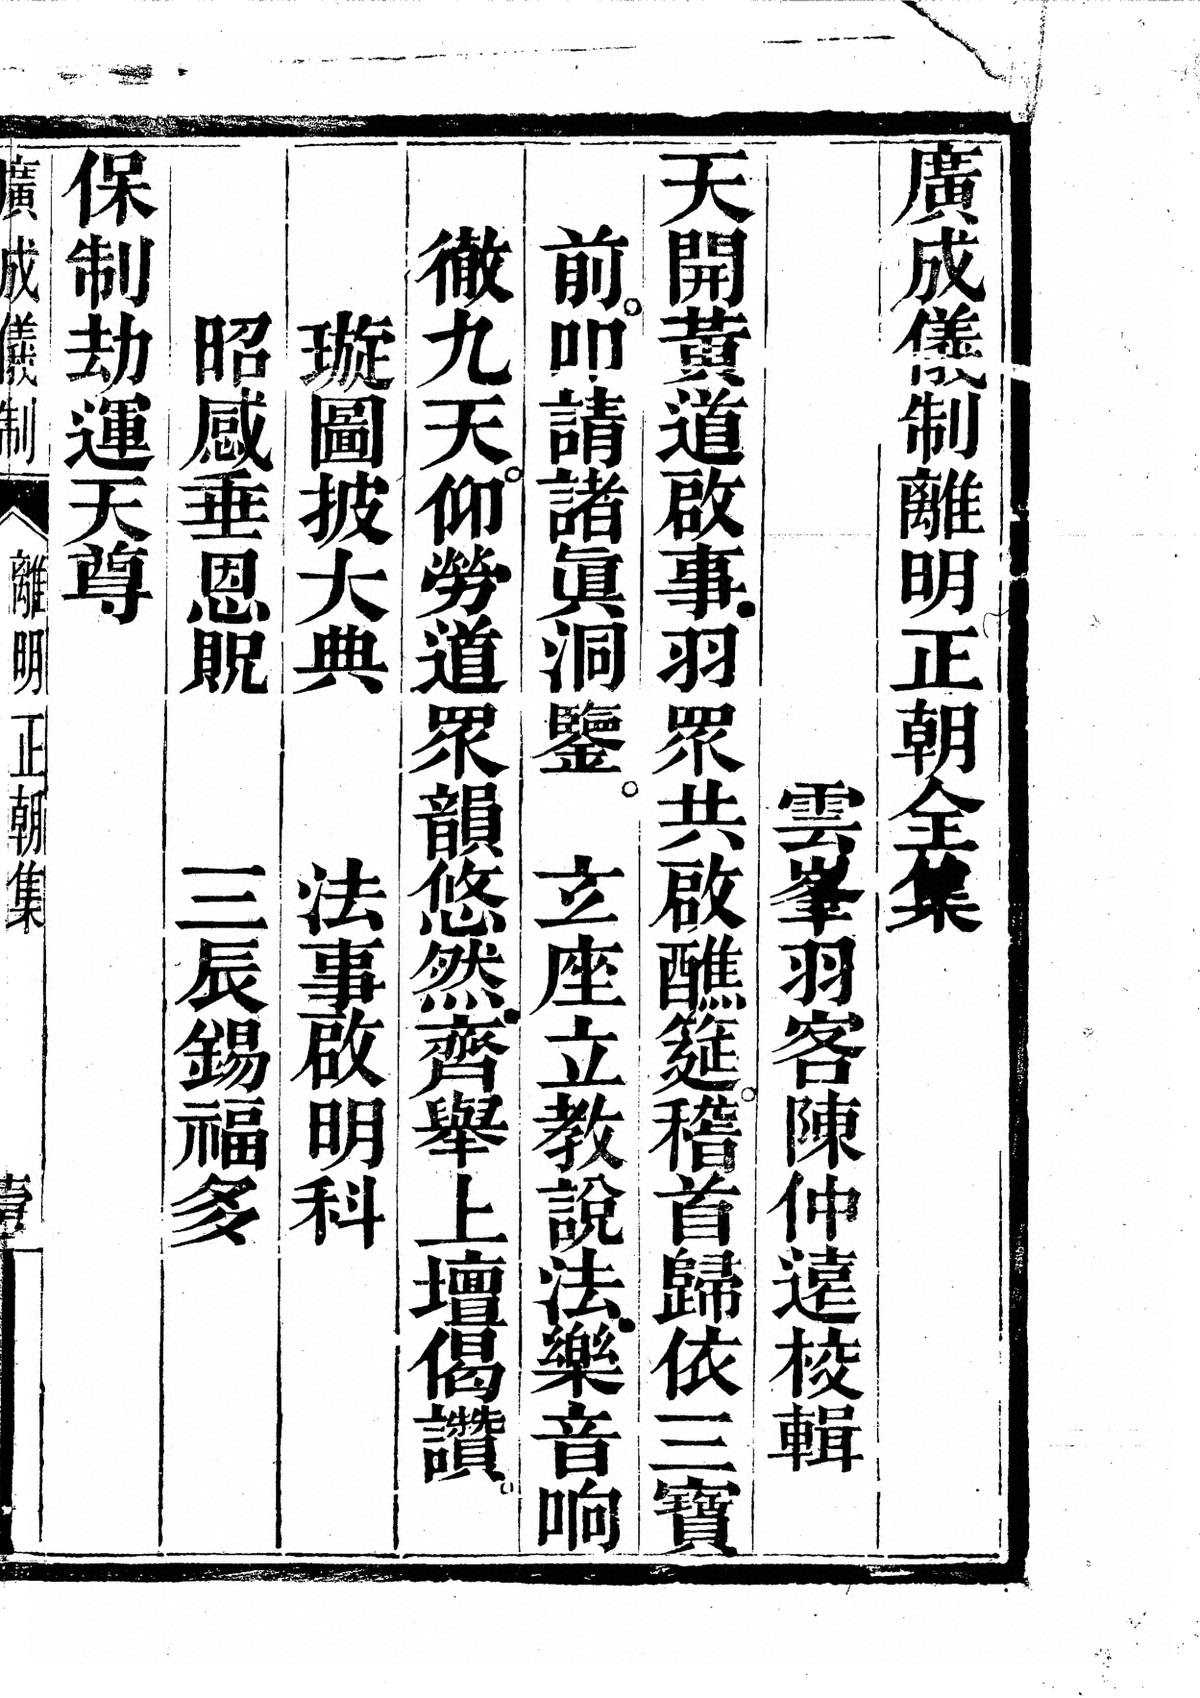 廣成儀制離明正朝全集
雲峯羽客陳仲遠校輯
天開黃道啟事羽眾共啟醮筵稽首歸依三寶
前叩請諸眞洞鑒 立座立教說法樂音响
徹九天仰勞道眾韻悠然齊舉上壇偈讚
璇圖披大典 法事啟明科
昭感垂恩貺 三辰錫福多
保制劫運天尊
廣成儀制 離明正朝集 壹